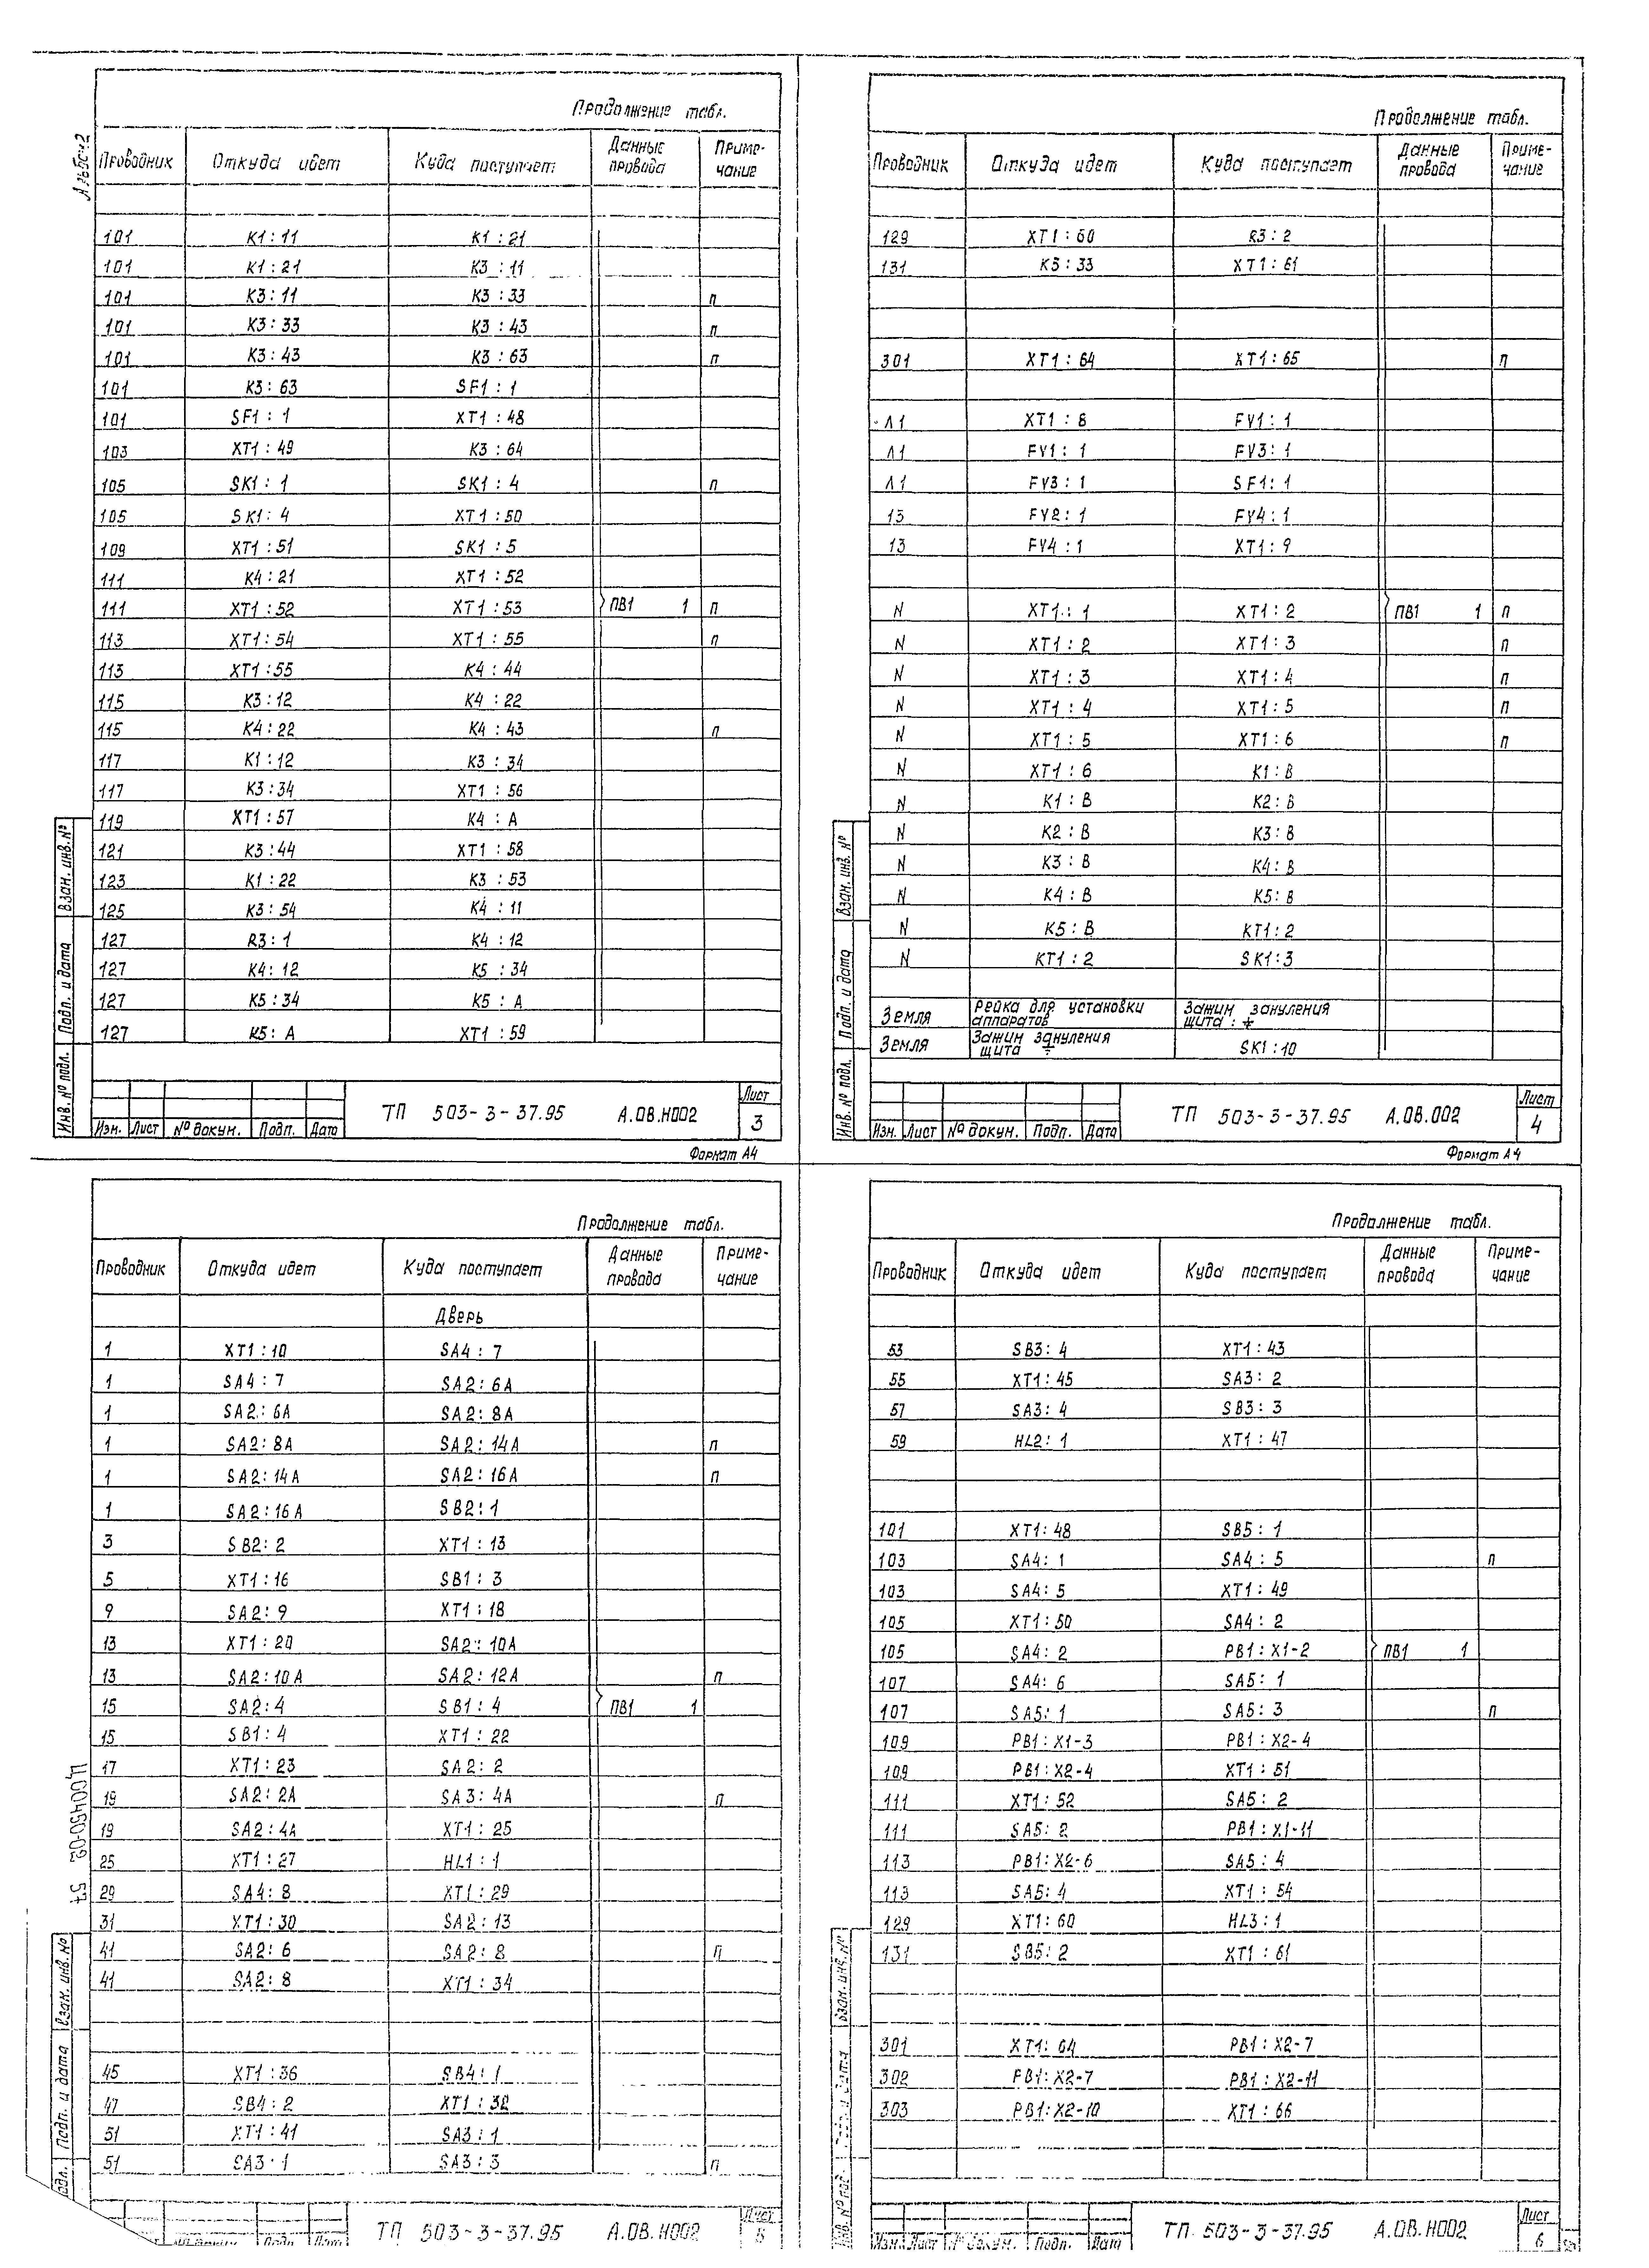 Продолжение табл.
Альбом 2
Проводник Откуда идет Куда поступает Данные провода Примечание
101 К1:11 К1:21
101 К1:21 К3:11
101 К3:11 К3:33 п
101 К3:33 К3:43 п
101 К3:43 К3:63 п
101 К3:63 SF1:1
101 SF1:1 XT1:48
103 XT1:49 К3:64
105 SK1:1 SK1:4 п
105 SK1:4 XT1:50
109 XT1:51 SK1:5
111 К4:21 XT1:52
111 XT1:52 XT1:53 ПВ1 1 п
113 XT1:54 XT1:55 п
113 XT1:55 К4:44
115 К3:12 К4:22
115 К4:22 К4:43 п
117 К1:12 К3:34
117 К3:34 XT1:56
119 XT1:57 К4:А
121 К3:44 XT1:58
123 К1:22 К3:53
125 К3:54 К4:11
127 R3:1 К4:12
127 К4:12 К5:34
127 К5:34 К5:А
127 К5:А XT1:59
Инв. № подл. Подп. и дата Взам. инв. №
Изм. Лист № докум. Подп. Дата
ТП 503-3-37.95 А.ОВ.Н002
Лист
3
Формат А4
Продолжение табл.
Проводник Откуда идет Куда поступает Данные провода Примечание
129 XT1:60 R3:2
131 К5:33 XT1:61
301 XT1:64 XT1:65 п
Л1 XT1:8 FV1:1
Л1 FV1:1 FV3:1
Л1 FV3:1 SF1:1
13 FV2:1 FV4:1
13 FV4:1 XT1:9
N XT1:1 XT1:2 ПВ1 1 п
N XT1:2 XT1:3 п
N XT1:3 XT1:4 п
N XT1:4 XT1:5 п
N XT1:5 XT1:6 п
N XT1:6 К1:В
N К1:В К2:В
N К2:В К3:В
N К3:В К4:В
N К4:В К5:В
N К5:В КТ1:2
N КТ1:2 SK1:3
Земля Рейка для установки аппаратов Зажим зануления щита :⏚
Земля Зажим зануления щита ⏚ SK1:10
Инв. № подл. Подп. и дата Взам. инв. №
Изм. Лист № докум. Подп. Дата
ТП 503-3-37.95 А.ОВ.002
Лист
4
Формат А4
Продолжение табл.
Проводник Откуда идет Куда поступает Данные провода Примечание
Дверь
1 XT1:10 SA4:7
1 SA4:7 SA2:6А
1 SA2:6А SA2:8А
1 SA2:8А SA2:14А п
1 SA2:14А SA2:16А п
1 SA2:16А SB2:1
3 SB2:2 XT1:13
5 XT1:16 SB1:3
9 SA2:9 XT1:18
13 XT1:20 SA2:10А
13 SA2:10А SA2:12А п
15 SA2:4 SB1:4 ПВ1 1
15 SB1:4 XT1:22
17 XT1:23 SA2:2
19 SA2:2А SA3:4А п
19 SA2:4А XT1:25
25 XT1:27 HL1:1
29 SA4:8 XT1:29
31 XT1:30 SA2:13
41 SA2:6 SA2:8 п
41 SA2:8 XT1:34
45 XT1:36 SB4:1
47 SB4:2 XT1:38
51 XT1:41 SA3:1
51 SA3:1 SA3:3 п
Ц00450-02 57
подл. Подп. и дата Взам. инв. №
Подп. Дата
ТП 503-3-37.95 А.ОВ.Н002
Лист
5
Продолжение табл.
Проводник Откуда идет Куда поступает Данные провода Примечание
53 SB3:4 XT1:43
55 XT1:45 SA3:2
57 SA3:4 SB3:3
59 HL2:1 XT1:47
101 XT1:48 SB5:1
103 SA4:1 SA4:5 п
103 SA4:5 XT1:49
105 XT1:50 SA4:2
105 SA4:2 РВ1:Х1-2 ПВ1 1
107 SA4:6 SA5:1
107 SA5:1 SA5:3 п
109 РВ1:Х1-3 РВ1:Х2-4
109 РВ1:Х2-4 XT1:51
111 XT1:52 SA5:2
111 SA5:2 РВ1:Х1-11
113 РВ1:Х2-6 SA5:4
113 SA5:4 XT1:54
129 XT1:60 HL3:1
131 SB5:2 XT1:61
301 XT1:64 РВ1:Х2-7
302 РВ1:Х2-7 РВ1:Х2-11
303 РВ1:Х2-10 XT1:66
Инв. № подл. Подп. и дата Взам. инв. №
Изм. Лист № докум. Подп. Дата
ТП 503-3-37.95 А.ОВ.Н002
Лист
6